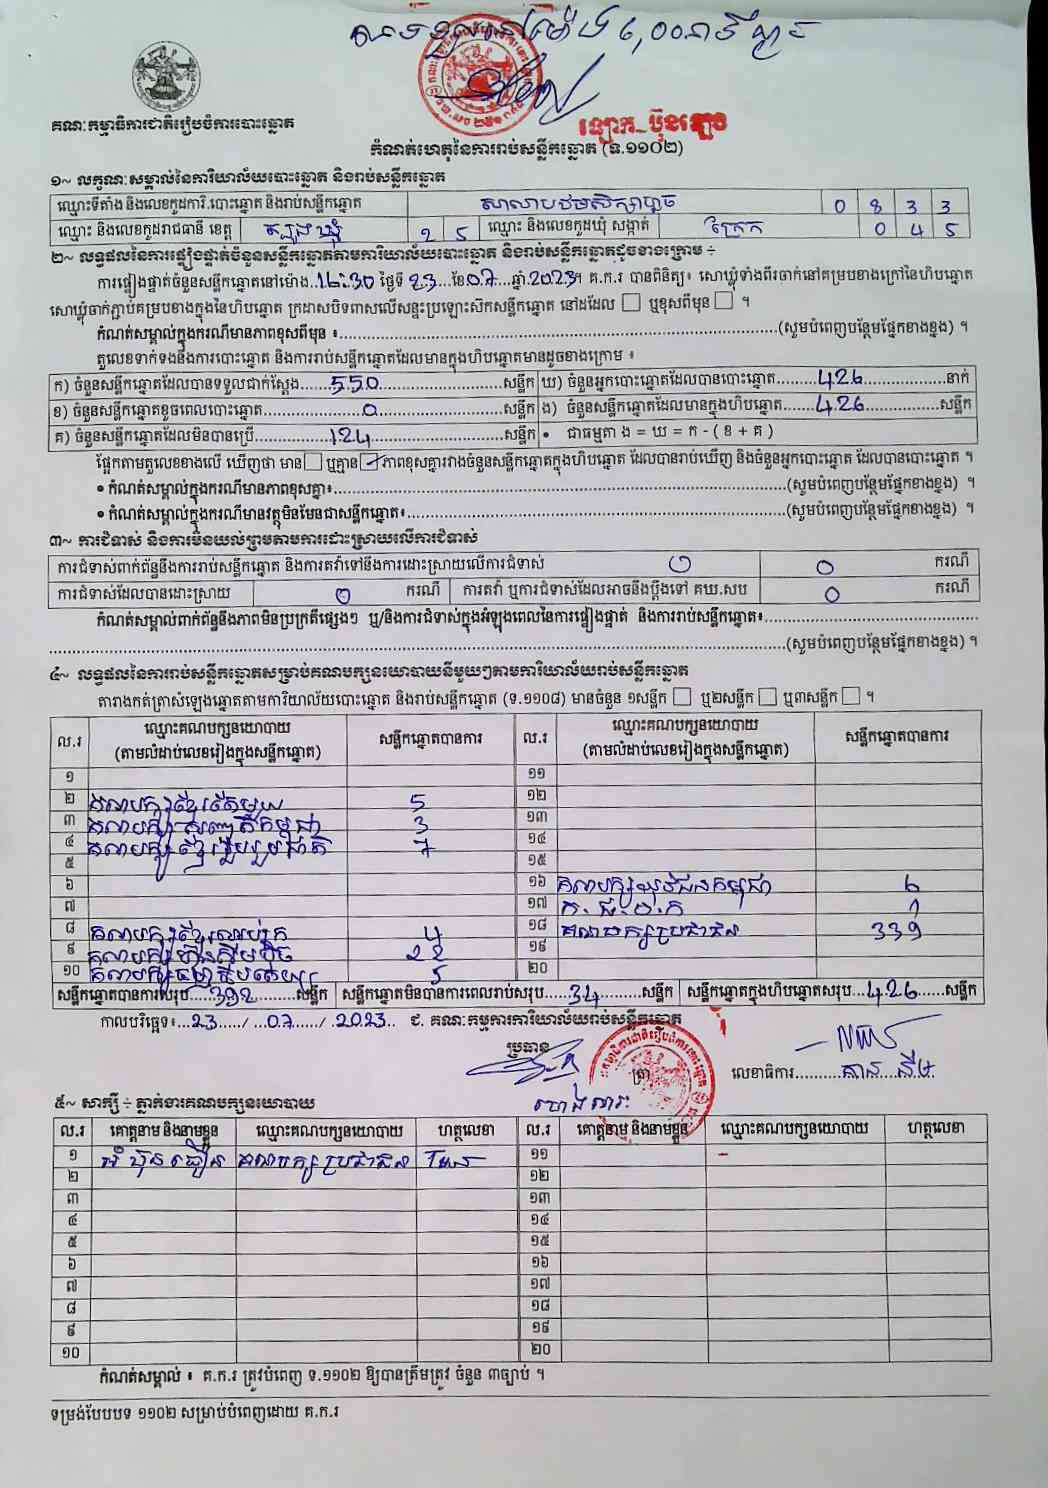 គណៈកម្មាធិការជាតិរៀបចំការបោះឆ្នោត
ឡោក ប៊ុនឆោម
កំណត់ហេតុនៃការរាប់សន្លឹកឆ្នោត (ទ.១១០២)
១~ លក្ខណៈសម្គាល់នៃការិយាល័យបោះឆ្នោត និងរាប់សន្លឹកឆ្នោត
ឈ្មោះទីតាំង និងលេខកូដការិ.បោះឆ្នោត និងរាប់សន្លឹកឆ្នោត 0 8 3 3
ឈ្មោះ និងលេខកូដរាជធានី ខេត្ត ត្បូងឃ្មុំ 2 5 ឈ្មោះ និងលេខកូដឃុំ សង្កាត់ ក្រែក 0 4 5
២~ លទ្ធផលនៃការផ្ទៀងផ្ទាត់ចំនួនសន្លឹកឆ្នោតតាមការិយាល័យបោះឆ្នោត និងរាប់សន្លឹកឆ្នោតដូចខាងក្រោម ÷
ការផ្ទៀងផ្ទាត់ចំនួនសន្លឹកឆ្នោតនៅម៉ោង 16:30 ថ្ងៃទី 23 ខែ 07 ឆ្នាំ 2023។ គ.ក.រ បានពិនិត្យ៖ សោឃ្លុំទាំងពីរចាក់នៅគម្របខាងក្រៅនៃហិបឆ្នោត
សោឃ្លុំចាក់ភ្ជាប់គម្របខាងក្នុងនៃហិបឆ្នោត ក្រដាសបិទពាសលើសន្ទះប្រឡោះស៊កសន្លឹកឆ្នោត នៅដដែល ☐ ឬខុសពីមុន ☐ ។
កំណត់សម្គាល់ក្នុងករណីមានភាពខុសពីមុន ៖ (សូមបំពេញបន្ថែមផ្នែកខាងខ្នង) ។
តួលេខទាក់ទងនឹងការបោះឆ្នោត និងការរាប់សន្លឹកឆ្នោតដែលមានក្នុងហិបឆ្នោតមានដូចខាងក្រោម ៖
ក) ចំនួនសន្លឹកឆ្នោតដែលបានទទួលជាក់ស្តែង 550 សន្លឹក ឃ) ចំនួនអ្នកបោះឆ្នោតដែលបានបោះឆ្នោត 426 នាក់
ខ) ចំនួនសន្លឹកឆ្នោតខូចពេលបោះឆ្នោត 0 សន្លឹក ង) ចំនួនសន្លឹកឆ្នោតដែលមានក្នុងហិបឆ្នោត 426 សន្លឹក
គ) ចំនួនសន្លឹកឆ្នោតដែលមិនបានប្រើ 124 សន្លឹក • ជាធម្មតា ង = ឃ = ក - ( ខ + គ )
ផ្អែកតាមតួលេខខាងលើ ឃើញថា មាន ☐ ឬគ្មាន ☑ ភាពខុសគ្នារវាងចំនួនសន្លឹកឆ្នោតក្នុងហិបឆ្នោត ដែលបានរាប់ឃើញ និងចំនួនអ្នកបោះឆ្នោត ដែលបានបោះឆ្នោត ។
• កំណត់សម្គាល់ក្នុងករណីមានភាពខុសគ្នា៖ (សូមបំពេញបន្ថែមផ្នែកខាងខ្នង) ។
• កំណត់សម្គាល់ក្នុងករណីមានវត្ថុមិនមែនជាសន្លឹកឆ្នោត៖ (សូមបំពេញបន្ថែមផ្នែកខាងខ្នង) ។
៣~ ការជំទាស់ និងការមិនយល់ព្រមតាមការដោះស្រាយលើការជំទាស់
ការជំទាស់ពាក់ព័ន្ធនឹងការរាប់សន្លឹកឆ្នោត និងការតវ៉ាទៅនឹងការដោះស្រាយលើការជំទាស់ 0 0 ករណី
ការជំទាស់ដែលបានដោះស្រាយ 0 ករណី ការតវ៉ា ឬការជំទាស់ដែលអាចនឹងប្តឹងទៅ គឃ.សប 0 ករណី
កំណត់សម្គាល់ពាក់ព័ន្ធនឹងភាពមិនប្រក្រតីផ្សេងៗ ឬ/និងការជំទាស់ក្នុងអំឡុងពេលនៃការផ្ទៀងផ្ទាត់ និងការរាប់សន្លឹកឆ្នោត៖
(សូមបំពេញបន្ថែមផ្នែកខាងខ្នង) ។
៤~ លទ្ធផលនៃការរាប់សន្លឹកឆ្នោតសម្រាប់គណបក្សនយោបាយនីមួយៗតាមការិយាល័យរាប់សន្លឹកឆ្នោត
តារាងកត់ត្រាសំឡេងឆ្នោតតាមការិយាល័យបោះឆ្នោត និងរាប់សន្លឹកឆ្នោត (ទ.១១០៨) មានចំនួន ១សន្លឹក ☐ ឬ២សន្លឹក ☐ ឬ៣សន្លឹក ☐ ។
ល.រ ឈ្មោះគណបក្សនយោបាយ (តាមលំដាប់លេខរៀងក្នុងសន្លឹកឆ្នោត) សន្លឹកឆ្នោតបានការ ល.រ ឈ្មោះគណបក្សនយោបាយ (តាមលំដាប់លេខរៀងក្នុងសន្លឹកឆ្នោត) សន្លឹកឆ្នោតបានការ
១ ១១
២ គណបក្សខ្មែរតែមួយ 5 ១២
៣ គណបក្ស សញ្ជាតិកម្ពុជា 3 ១៣
៤ គណបក្ស ខ្មែររួបរួមជាតិ 7 ១៤
៥ ១៥
៦ ១៦ គណបក្សយុវជនកម្ពុជា 6
៧ ១៧ 1
៨ គណបក្ស 4 ១៨ គណបក្សប្រជាជន 339
៩ គណបក្សហ៊្វុនស៊ិនប៉ិច 22 ១៩
១០ គណបក្សធម្មាធិបតេយ្យ 5 ២០
សន្លឹកឆ្នោតបានការសរុប 392 សន្លឹក សន្លឹកឆ្នោតមិនបានការពេលរាប់សរុប 34 សន្លឹក សន្លឹកឆ្នោតក្នុងហិបឆ្នោតសរុប 426 សន្លឹក
កាលបរិច្ឆេទ៖ 23 / 07 / 2023 ជ. គណៈកម្មការការិយាល័យរាប់សន្លឹកឆ្នោត
ប្រធាន ត្រា លេខាធិការ
៥~ សាក្សី ÷ ភ្នាក់ងារគណបក្សនយោបាយ
ល.រ គោត្តនាម និងនាមខ្លួន ឈ្មោះគណបក្សនយោបាយ ហត្ថលេខា ល.រ គោត្តនាម និងនាមខ្លួន ឈ្មោះគណបក្សនយោបាយ ហត្ថលេខា
១ គណបក្សប្រជាជន ១១
២ ១២
៣ ១៣
៤ ១៤
៥ ១៥
៦ ១៦
៧ ១៧
៨ ១៨
៩ ១៩
១០ ២០
កំណត់សម្គាល់ ៖ គ.ក.រ ត្រូវបំពេញ ទ.១១០២ ឱ្យបានត្រឹមត្រូវ ចំនួន ៣ច្បាប់ ។
ទម្រង់បែបបទ ១១០២ សម្រាប់បំពេញដោយ គ.ក.រ